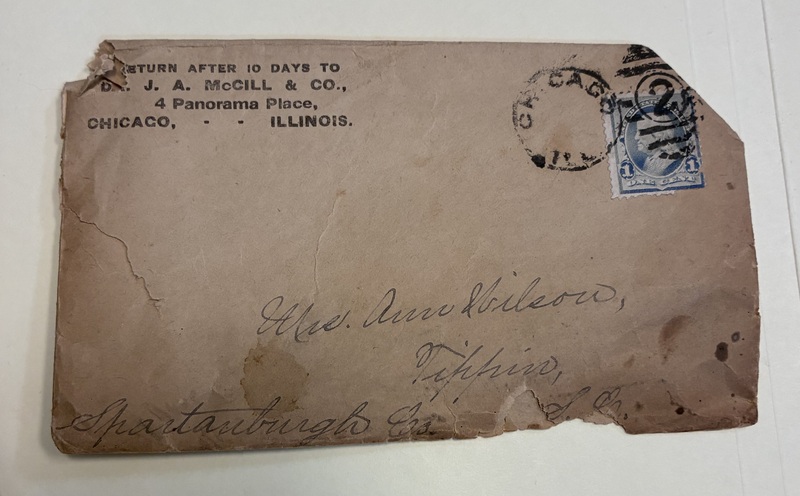 RETURN AFTER 10 DAYS TO
DR. J. A. McGILL & CO.,
4 Panorama Place,
CHICAGO, - - ILLINOIS.
CHICAGO
ILL
2
1 1
ONE CENT
Mrs. Ann Wilson,
Tippin,
Spartanburgh Co. S. C.